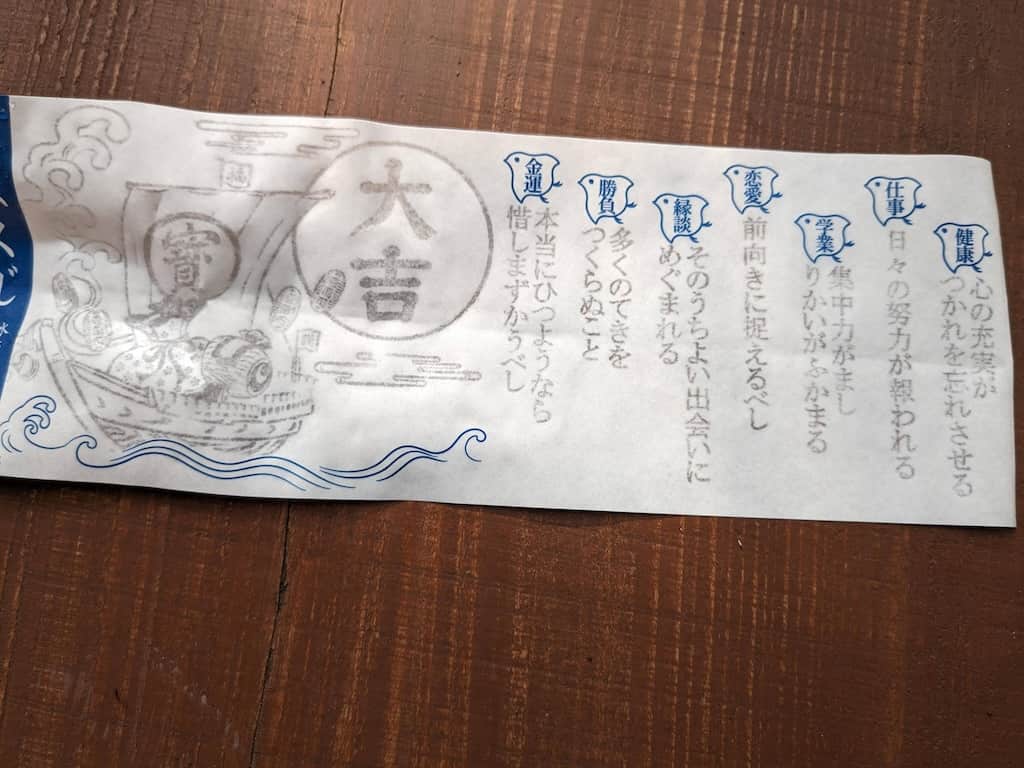 健康
心の充実が
つかれを忘れさせる
仕事
日々の努力が報われる
学業
集中力がまし
りかいがふかまる
恋愛
前向きに捉えるべし
縁談
そのうちよい出会いに
めぐまれる
勝負
多くのてきを
つくらぬこと
金運
本当にひつようなら
惜しまずかうべし
大吉
寳
くじ
水